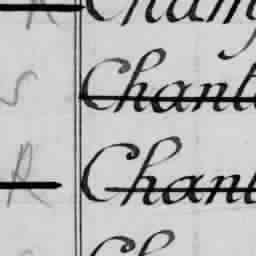 R Champ
S Chant
R Chant
Ch